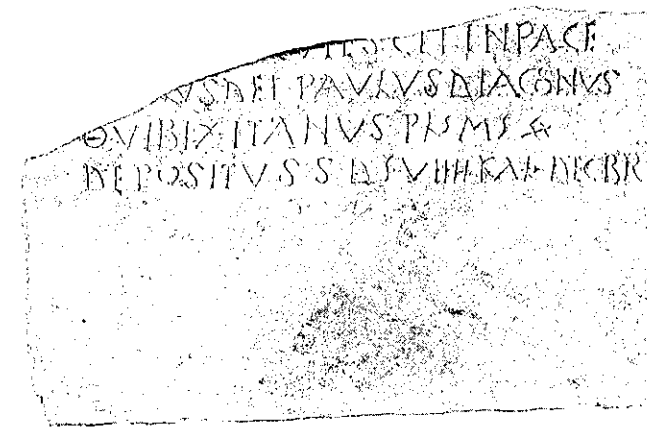 INPACE
VSDEI PAVLVS DIACONVS
QVIBIXITANVS PLSMS
DEPOSITVS S DS VIIII KAL DECBR